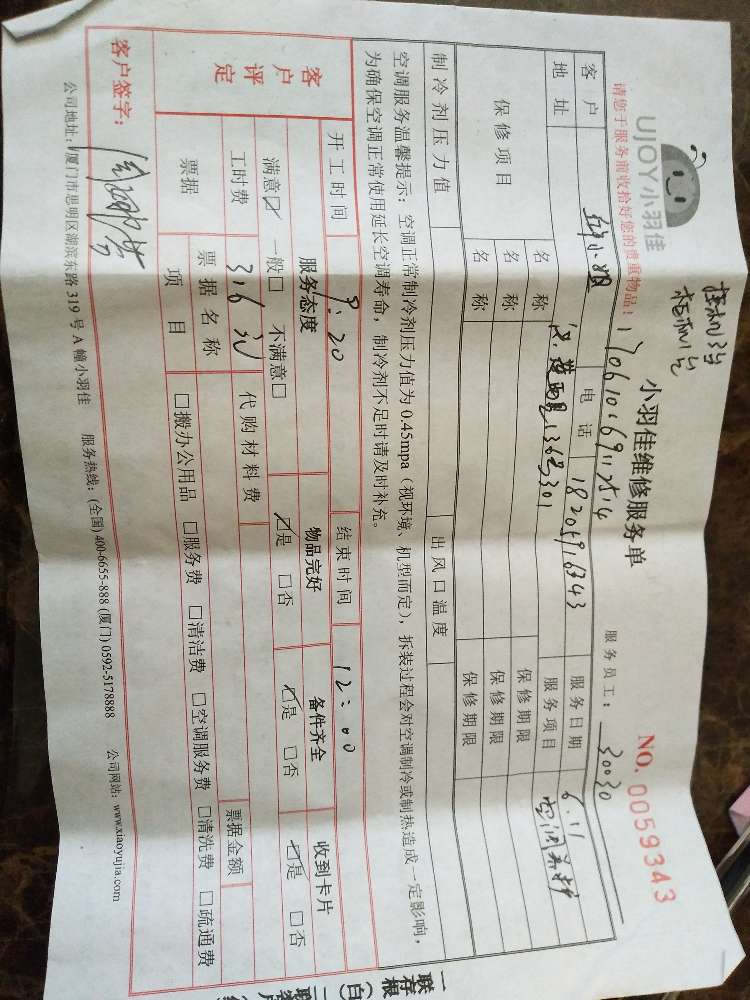 挂机3台
柜机1台
UJOY小羽佳
小羽佳维修服务单
NO. 0059343
请您于服务前收拾好您的贵重物品!
服务员工: 30030
客户 小姐 电话 18205916343 服务日期 6.11
地址 301 服务项目 空调
保修项目 名称 保修期限
名称 保修期限
名称 保修期限
制冷剂压力值 出风口温度
空调服务温馨提示:空调正常制冷剂压力值为 0.45mpa(视环境、机型而定),拆装过程会对空调制冷或制热造成一定影响,
为确保空调正常使用延长空调寿命,制冷剂不足时请及时补充。
开工时间 9:20 结束时间 12:00
客户评定 服务态度 物品完好 备件齐全 收到卡片
满意☑ 一般□ 不满意□ ☑是 □否 ☑是 □否 ☑是 □否
工时费 316元 代购材料费
票据 票据名称 票据金额
项目 □搬办公用品 □服务费 □清洁费 □空调服务费 □清洗费 □疏通费
客户签字:
公司地址:厦门市思明区湖滨东路 319 号 A 幢小羽佳 服务热线:(全国) 400-6655-888 (厦门) 0592-5178888 公司网站:www.xiaoyujia.com
一联存根(白)二联客户